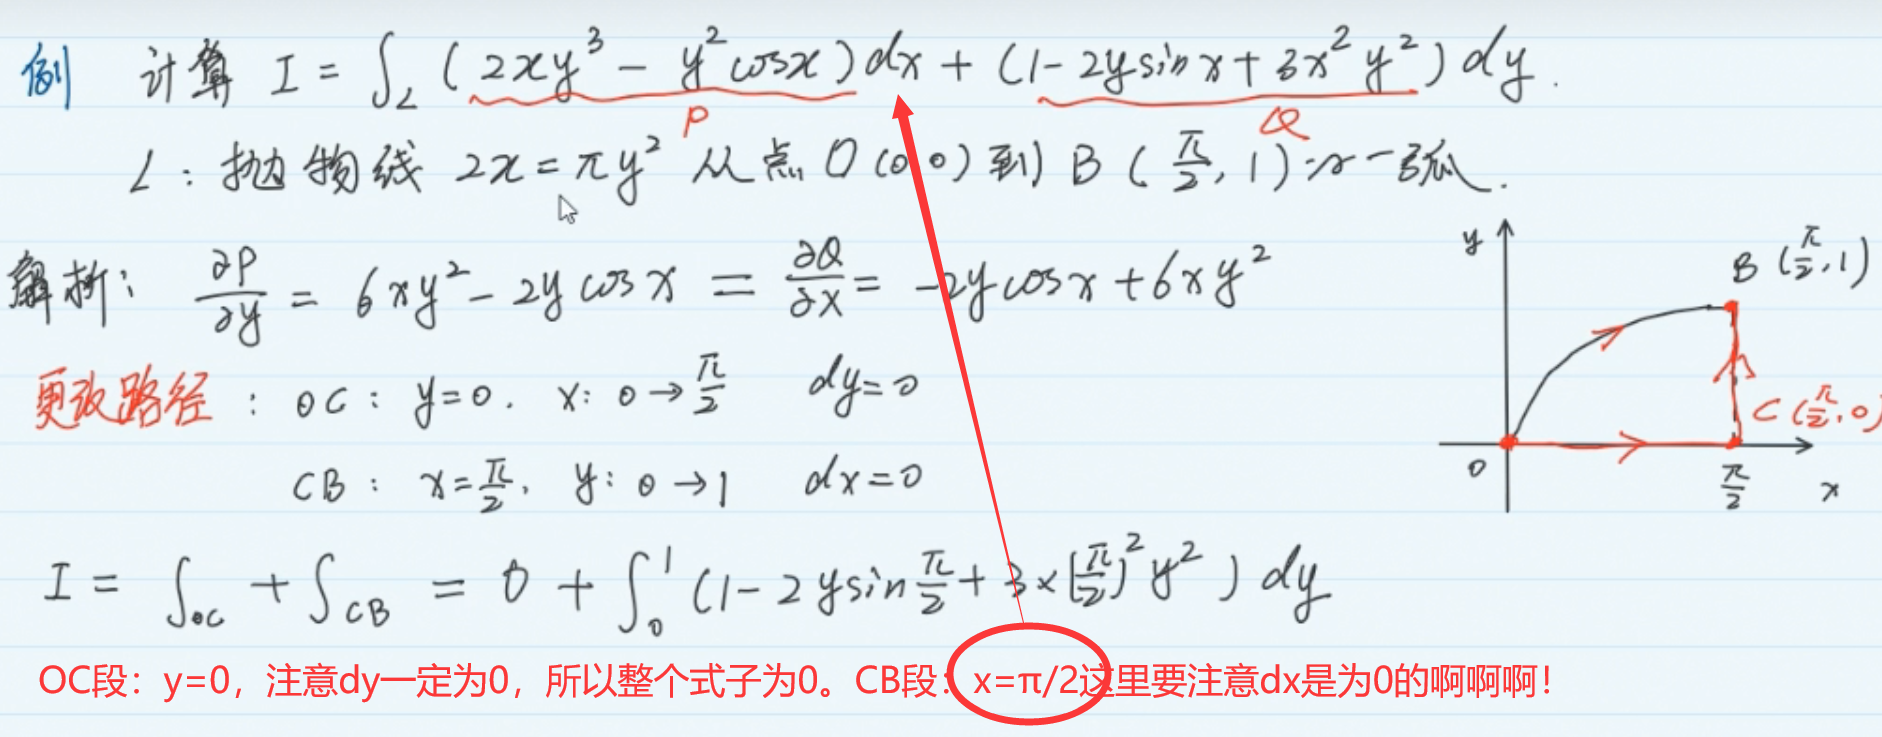 例 计算 I = ∫_L (2xy³ - y²cosx)dx + (1-2ysinx+3x²y²)dy.
P Q
L: 抛物线 2x=πy² 从点 O(0,0) 到 B(π/2, 1) 的一弧.
解析: ∂P/∂y = 6xy² - 2ycosx = ∂Q/∂x = -2ycosx+6xy²
更改路径: OC: y=0. x: 0→π/2 dy=0
CB: x=π/2, y: 0→1 dx=0
I = ∫_OC + ∫_CB = 0 + ∫₀¹ (1-2ysin π/2 + 3×(π/2)²y²) dy
y
B (π/2, 1)
C (π/2, 0)
0 π/2 x
OC段：y=0，注意dy一定为0，所以整个式子为0。CB段：x=π/2这里要注意dx是为0的啊啊啊！